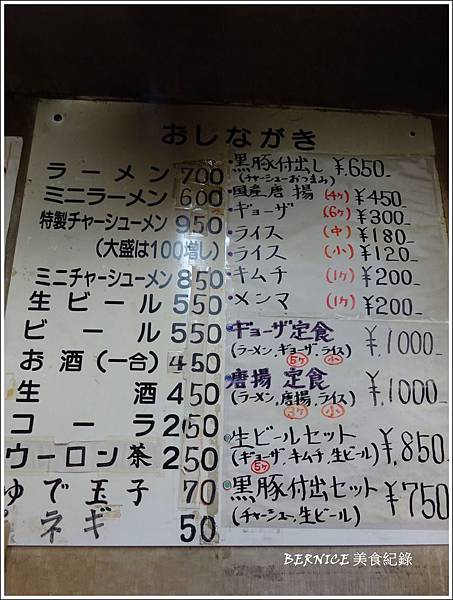 おしながき
ラーメン 700
ミニラーメン 600
特製チャーシューメン 950
(大盛は100増し)
ミニチャーシューメン 850
生ビール 550
ビール 550
お酒(一合) 450
生酒 450
コーラ 250
ウーロン茶 250
ゆで玉子 70
ネギ 50
・黒豚付出し ¥.650-
(チャーシューおつまみ)
・国産唐揚 (4ケ) ¥450
・ギョーザ (6ケ) ¥300-
・ライス (中) ¥180-
・ライス (小) ¥120-
・キムチ (1ケ) ¥200-
・メンマ (1ケ) ¥200-
・ギョーザ定食 ¥,1000-
(ラーメン,ギョーザ,ライス)
5ケ 小
・唐揚 定食 ¥,1000-
(ラーメン,唐揚,ライス)
2ケ 小
・生ビールセット ¥,850-
(ギョーザ,キムチ,生ビール)
5ケ
・黒豚付出セット ¥750
(チャーシュー,生ビール)
BERNICE 美食紀錄